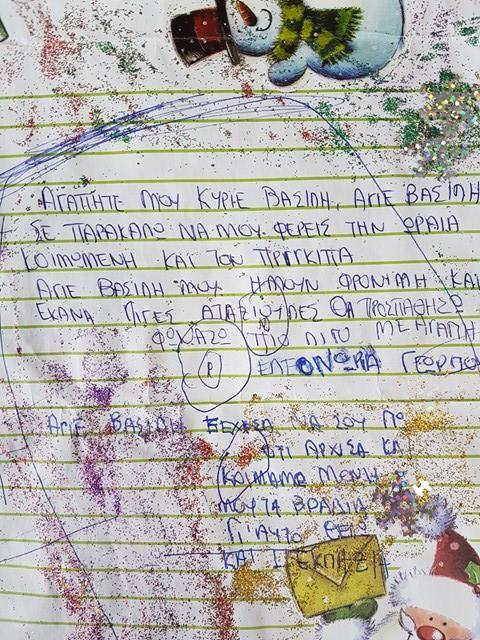 ΑΓΑΠΗΤΕ ΜΟΥ ΚΥΡΙΕ ΒΑΣΙΛΗ, ΑΓΙΕ ΒΑΣΙΛΗ
ΣΕ ΠΑΡΑΚΑΛΩ ΝΑ ΜΟΥ ΦΕΡΕΙΣ ΤΗΝ ΩΡΑΙΑ
ΚΟΙΜΩΜΕΝΗ ΚΑΙ ΤΟΝ ΠΡΙΓΚΙΠΑ
ΑΓΙΕ ΒΑΣΙΛΗ ΜΟΥ ΗΜΟΥΝ ΦΡΟΝΙΜΗ ΚΑΙ
ΕΚΑΝΑ ΛΙΓΕΣ ΑΤΑΞΙΟΥΛΕΣ ΘΑ ΠΡΟΣΠΑΘΗΣΩ
ΦΩΝΑΖΩ ΠΙΟ ΛΙΓΟ ΜΕ ΑΓΑΠΗ
Ρ ΕΛΕΟΝΩΡΑ
ΑΓΙΕ ΒΑΣΙΛΗ ΞΕΧΑΣΑ ΝΑ ΣΟΥ ΠΩ
ΟΤΙ ΑΡΧΙΣΑ ΚΑΙ
ΚΟΙΜΑΜΑΙ ΜΟΝΗ
ΜΟΥ ΤΑ ΒΡΑΔΙΑ
ΓΙ'ΑΥΤΟ ΘΕΛ
ΚΑΙ 1 ΕΚΠΛΗΞΗ